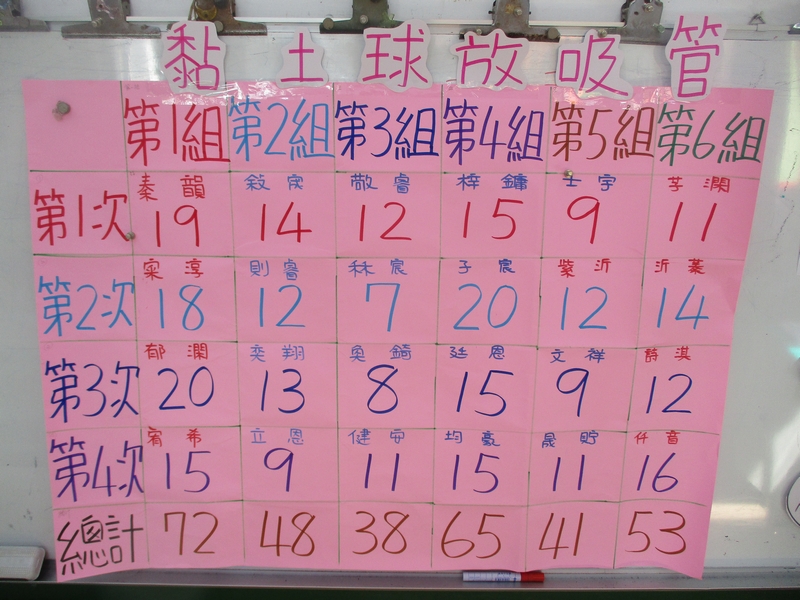 黏土球放吸管
第1組 第2組 第3組 第4組 第5組 第6組
秦韻 敍宸 敬睿 梓鏞 士宇 芓澖
第1次 19 14 12 15 9 11
寀淳 則睿 秝宸 子宸 紫沂 沂蓁
第2次 18 12 7 20 12 14
郁澖 奕翔 奐錡 廷恩 文祥 詩淇
第3次 20 13 8 15 9 12
宥希 立恩 健安 均豪 晟貯 仟音
第4次 15 9 11 15 11 16
總計 72 48 38 65 41 53